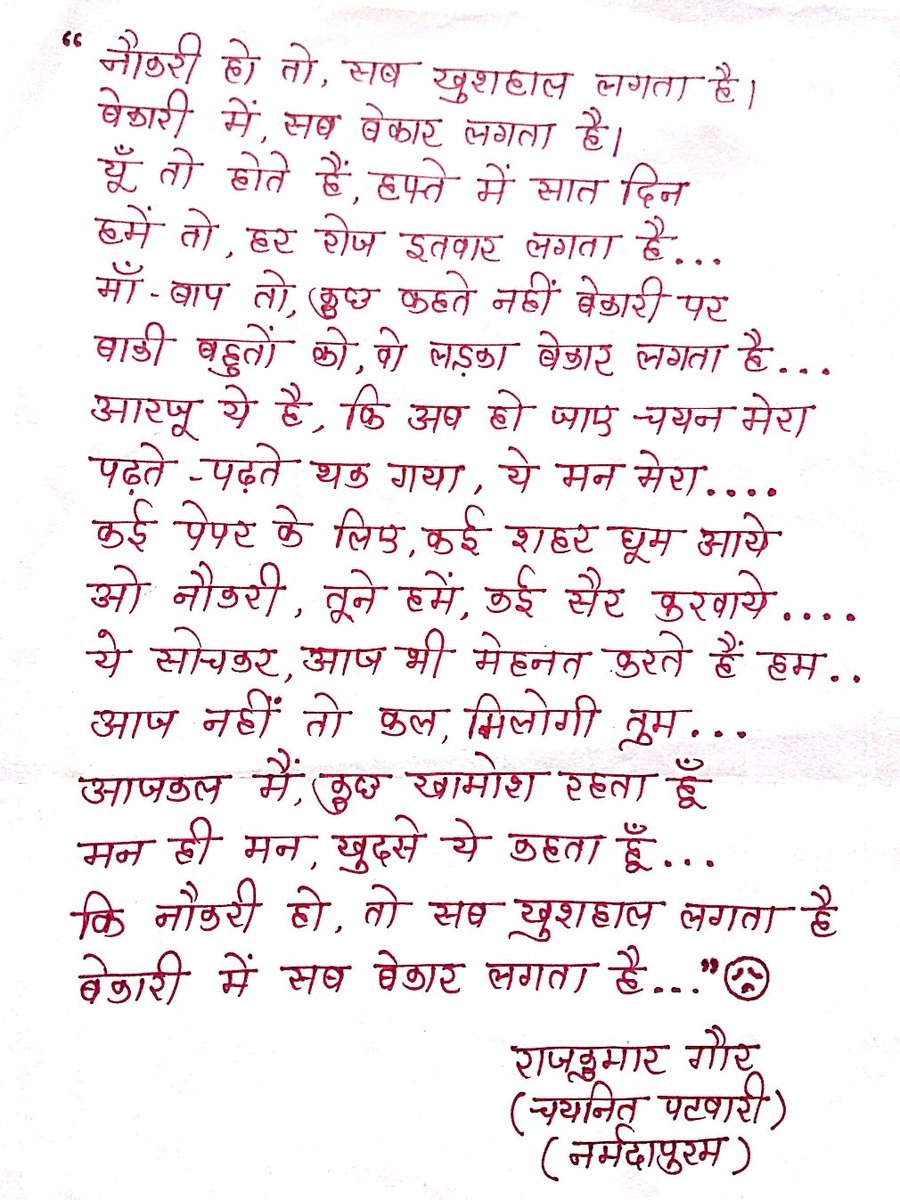 “ नौकरी हो तो, सब खुशहाल लगता है।
बेकारी में, सब बेकार लगता है।
यूँ तो होते हैं, हफ्ते में सात दिन
हमें तो, हर रोज इतवार लगता है...
माँ - बाप तो, कुछ कहते नहीं बेकारी पर
बाकी बहुतों को, वो लड़का बेकार लगता है...
आरजू ये है, कि अब हो जाए चयन मेरा
पढ़ते - पढ़ते थक गया, ये मन मेरा....
कई पेपर के लिए, कई शहर घूम आये
ओ नौकरी, तूने हमें, कई सैर करवाये....
ये सोचकर, आज भी मेहनत करते हैं हम..
आज नहीं तो कल, मिलोगी तुम...
आजकल मैं, कुछ खामोश रहता हूँ
मन ही मन, खुदसे ये कहता हूँ...
कि नौकरी हो, तो सब खुशहाल लगता है
बेकारी में सब बेकार लगता है...”
राजकुमार गौर
(चयनित पटवारी)
(नर्मदापुरम)